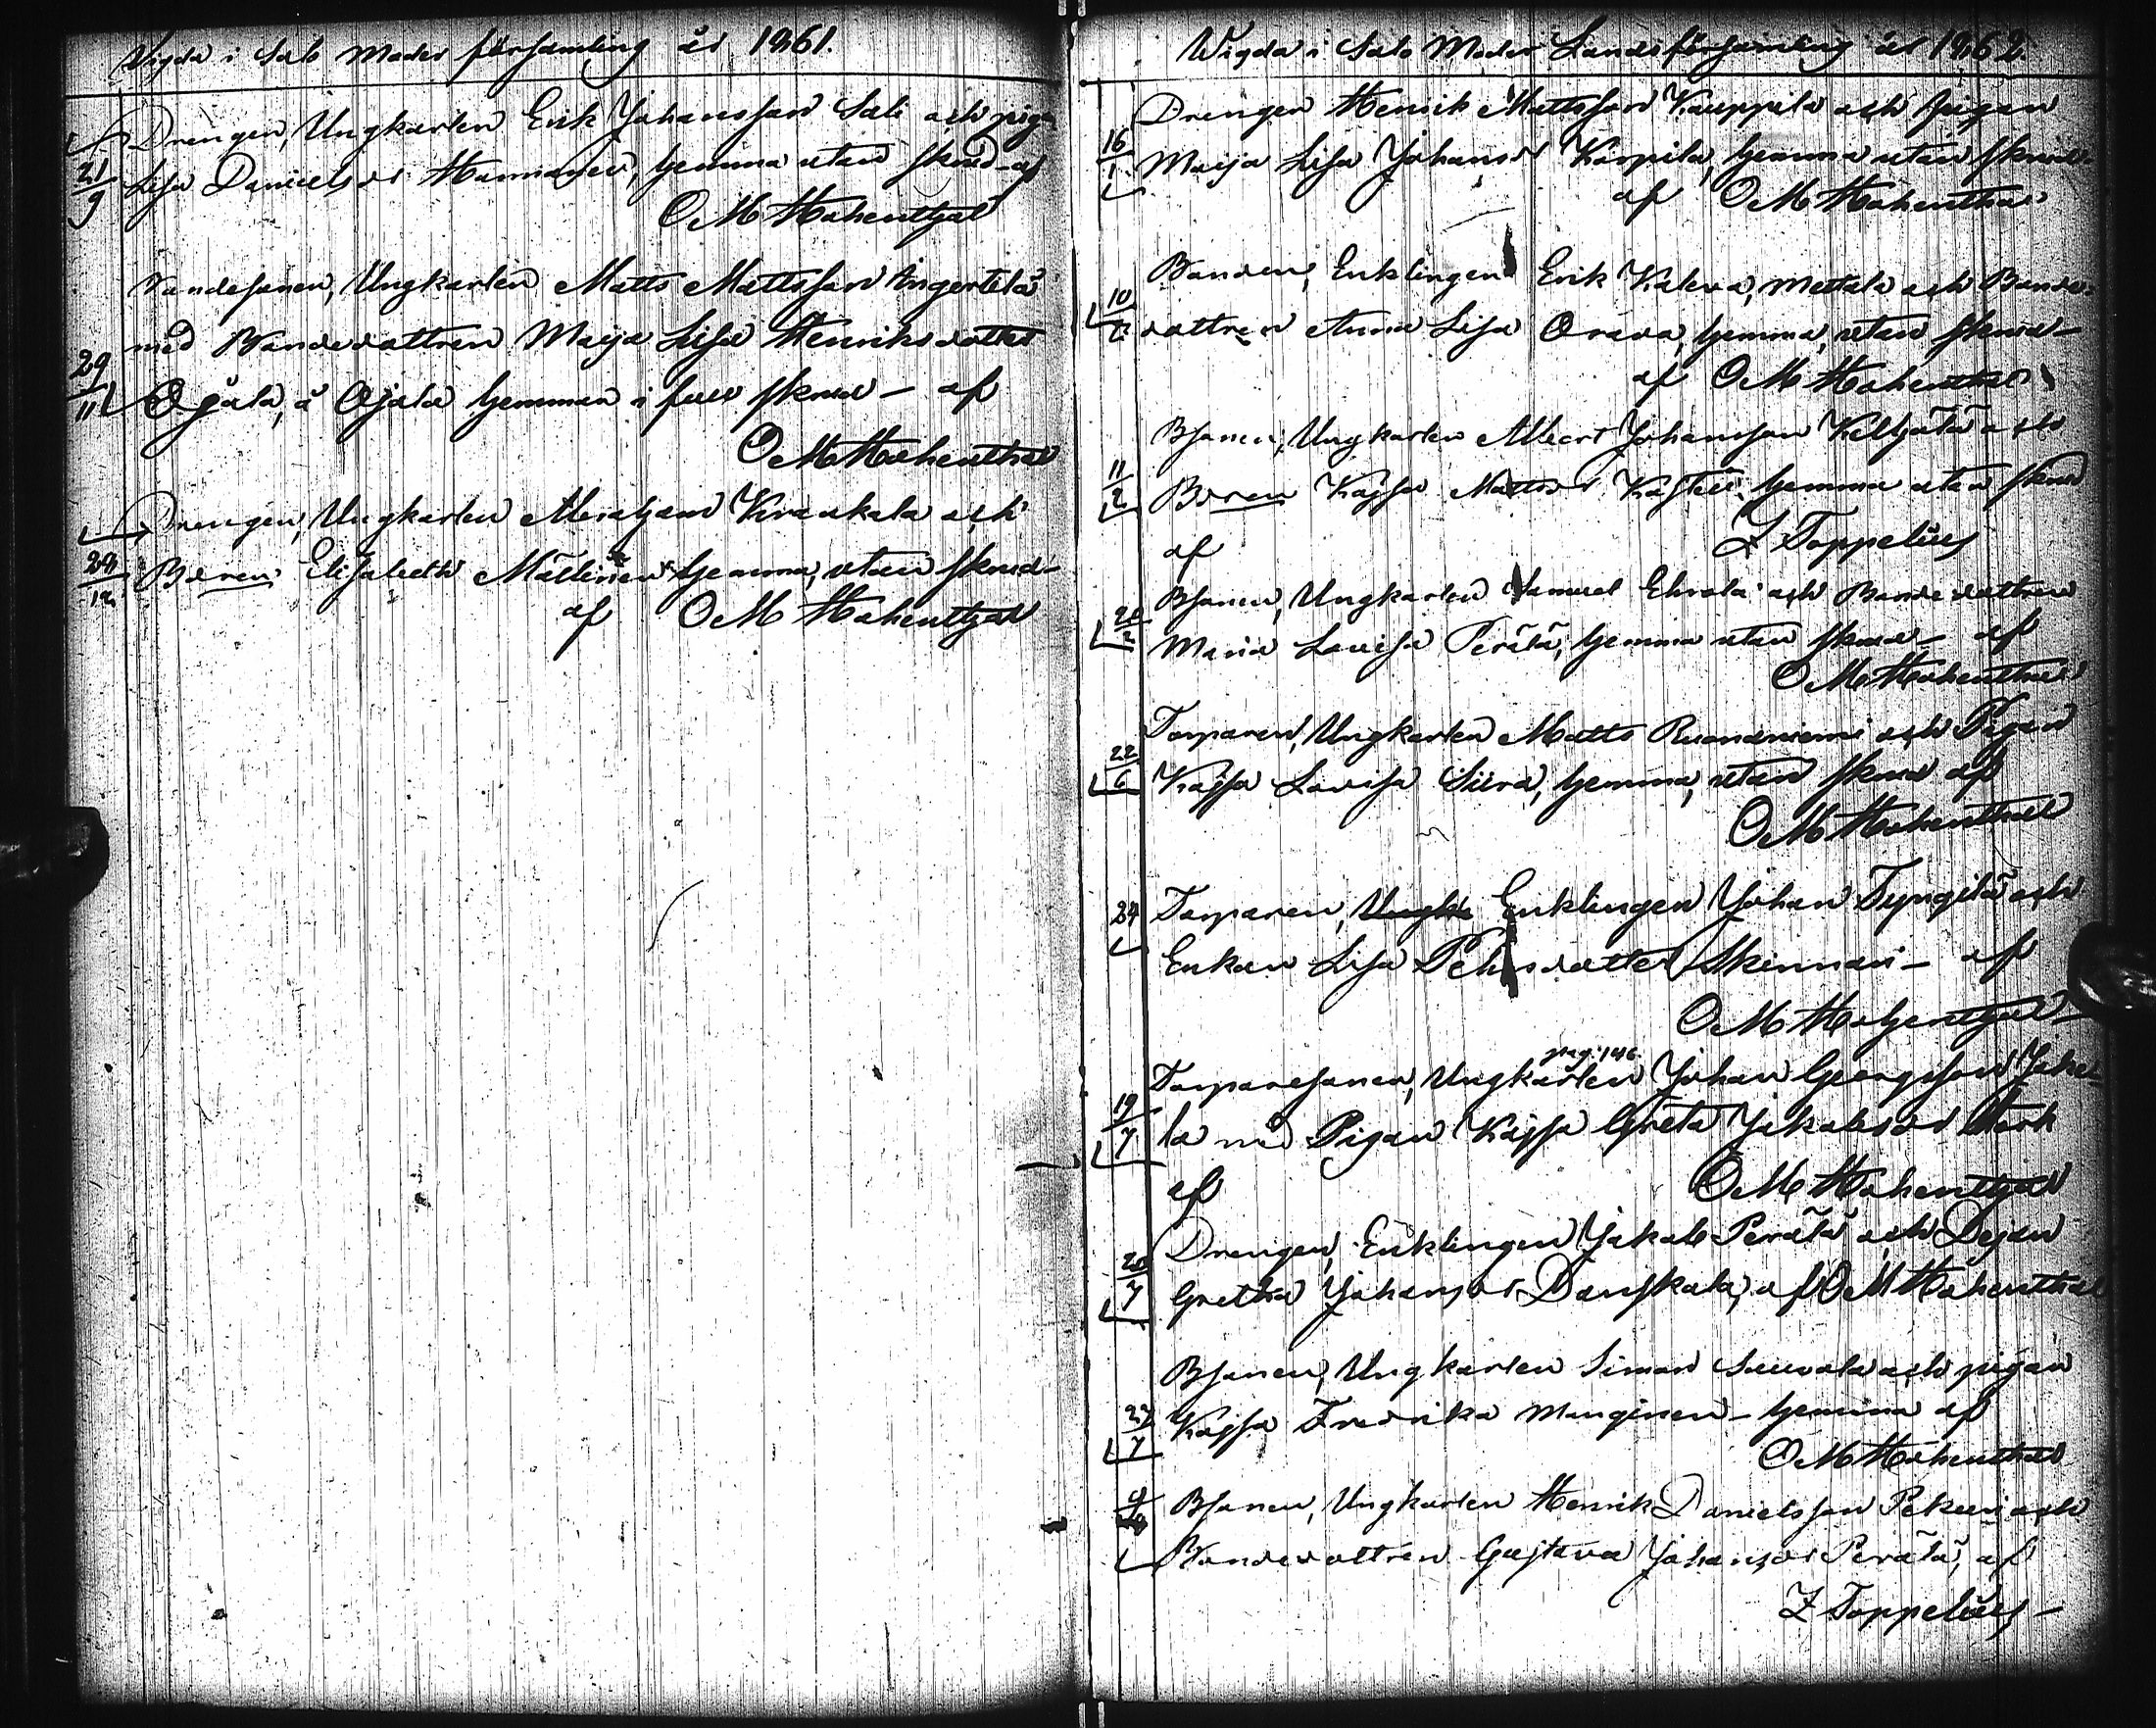 Vigda i Salo Moder församling år 1861.
21/9 Drengen, Ungkarlen Erik Johansson Sali och piga
Lisa Danielsdr Hannanen, hemma utan skrud af
O M Hohenthal
Bondesonen, Ungkarlen Matts Mattsson Angertelä
29/11 med Bondedottren Maija Lisa Henriksdotter
Ojala, å Ojala hemman i full skrud – af
O M Hohenthal
Drengen, Ungkarlen Abraham Kraukala och
28/12 Bdren Elisabeth Mällinen hemma, utan skrud –
af O M Hohenthal
Wigda i Salo Moder Landsförsamling år 1862.
Drengen Henrik Mattsson Kauppila och pigan
16/1 Maija Lisa Johansdr Karpila, hemma utan skrud
af O M Hohenthal
Bonden, Enklingen Erik Kaleva, Mettala och Bonde-
10/2 dottren Anna Lisa Orava, hemma, utan skrud –
af O M Hohenthal
Bsonen, Ungkarlen Albert Johansson Keltjälä och
11/2 Bdren Kajsa Mattsdr hemma utan skrud
af Z Toppelius
Bsonen, Ungkarlen Samuel Ehrola och Bondedottren
20/2 Maria Lovisa Perälä, hemma utan skrud – af
O M Hohenthal
Torparen, Ungkarlen Matts Ruonaniemi och Pigan
22/6 Kajsa Lovisa Siira, hemma, utan skrud af
O M Hohenthal
24 Torparen, Ungk Enklingen Johan Tyngilä och
Enkan Lisa Pehrsdotter Skinnari – af
O M Hohenthal
pag. 146.
Torparesonen, Ungkarlen Johan Georgsson Joke-
19/7 la med Pigan Kajsa Greta Jakobsdr Stark
af O M Hohenthal
Drengen, Enklingen Jakob Perälä och Dejan
20/7 Gretha Johansdr Danskala, af O M Hohenthal
Bsonen, Ungkarlen Simon Suuvala och pigan
27/7 Kajsa Fredrika Manginen – hemma af
O M Hohenthal
Bsonen, Ungkarlen Henrik Danielsson Pekuri och
Bondedottren Gustava Johansdr Perälä, af
Z Toppelius –